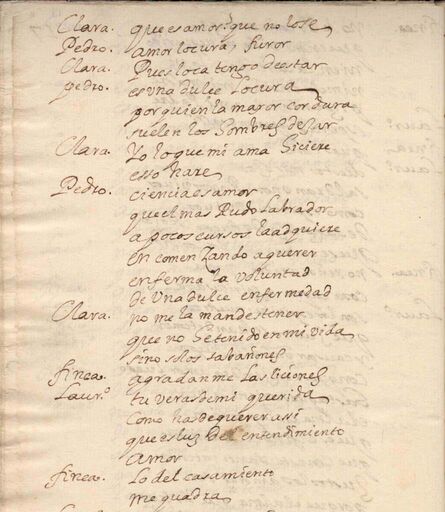 Clara. que es amor? que no lo se
Pedro. amor locura, furor
Clara. Pues loca tengo de estar
pedro. es una dulce Locura
por quien la mayor cordura
suelen los hombres dejar
Clara. Yo lo que mi ama hiciere
esso hare
Pedro. ciencia es amor
que el mas Rudo Labrador
a pocos cursos la adquiere
en comenzando a querer
enferma la voluntad
de Una dulce enfermedad
Clara. no me la mandes tener
que no he tenido en mi vida
sino solos sabañones
finea. agradanme Las liciones
Laur.º tu veras de mi querida
Como has de querer assi
que es luz Del entendimiento
Amor
finea. Lo del casamiento
me quadra